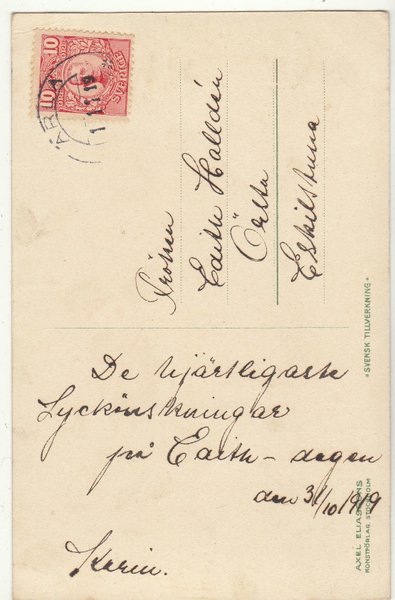 10 10
SVERIGE
ÄRLA
1 11 19
Fröken
Edith Halldén
Örsta
Eskilstuna
De hjärtligaste
Lyckönskningar
på Edith-dagen
den 31/10 1919
Karin.
* SVENSK TILLVERKNING *
AXEL ELIASSONS
KONSTFÖRLAG, STOCKHOLM